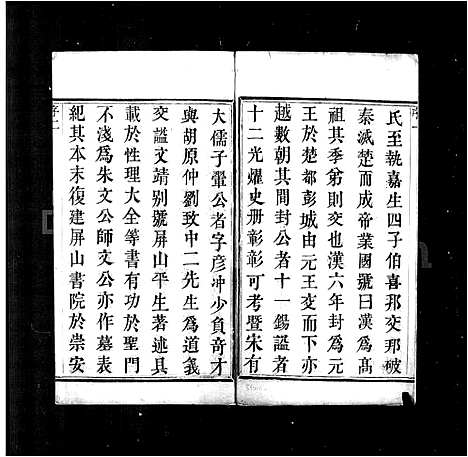 氏至執嘉生四子伯喜邦交邦破
秦滅楚而成帝業國號曰漢爲髙
祖其季弟則交也漢六年封爲元
王於楚都彭城由元王交而下亦
越數朝其間封公者十一錫謚者
十二光燿史册彰彰可考暨宋有
大儒子翬公者字彦冲少負奇才
與胡原仲劉致中二先生爲道義
交謚文靖别號屏山平生著述具
載於性理大全等書有功於聖門
不淺爲朱文公師文公亦作墓表
紀其本末復建屏山書院於崇安